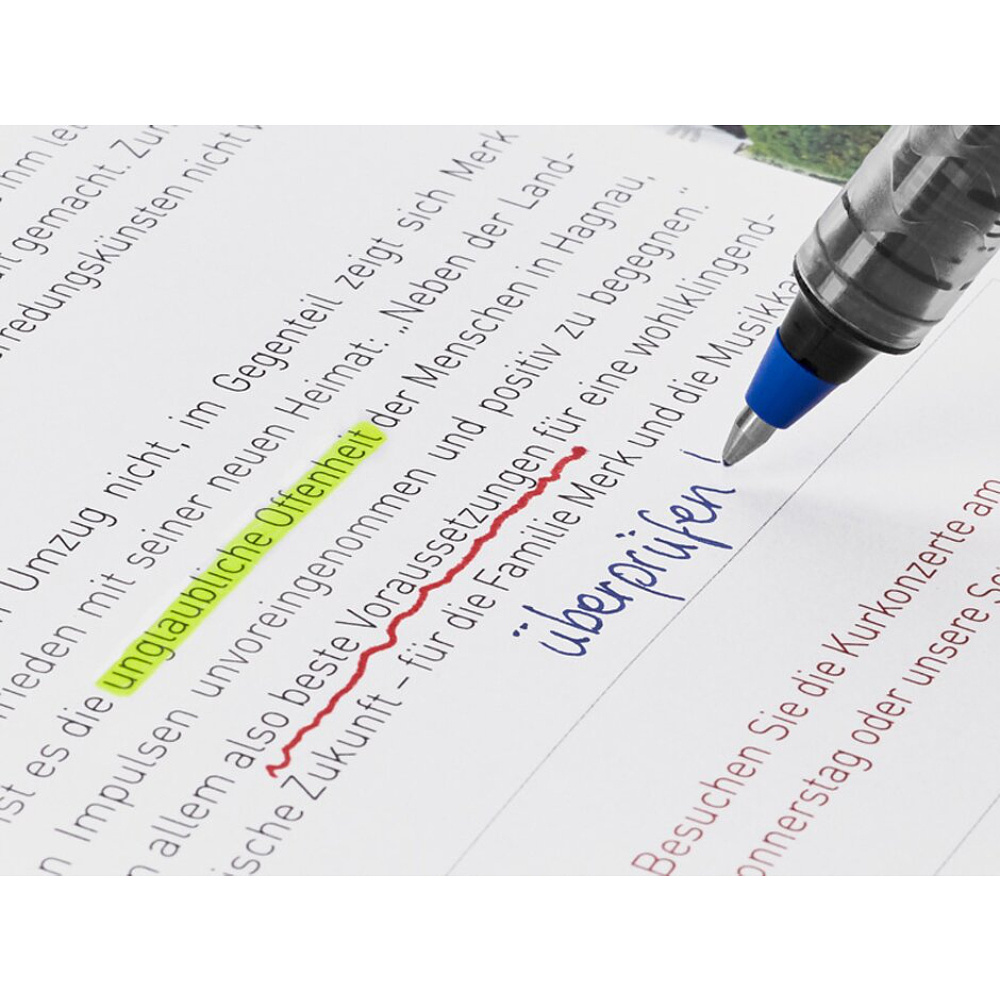 gemacht. Zur
rredungskünsten nicht
Umzug nicht, im Gegenteil zeigt sich Merk
rieden mit seiner neuen Heimat: „Neben der Land-
ist es die unglaubliche Offenheit der Menschen in Hagnau,
n Impulsen unvoreingenommen und positiv zu begegnen.“
allem also beste Voraussetzungen für eine wohlklingend-
ische Zukunft – für die Familie Merk und die Musikka
überprüfen
Besuchen Sie die Kurkonzerte am
onnerstag oder unsere